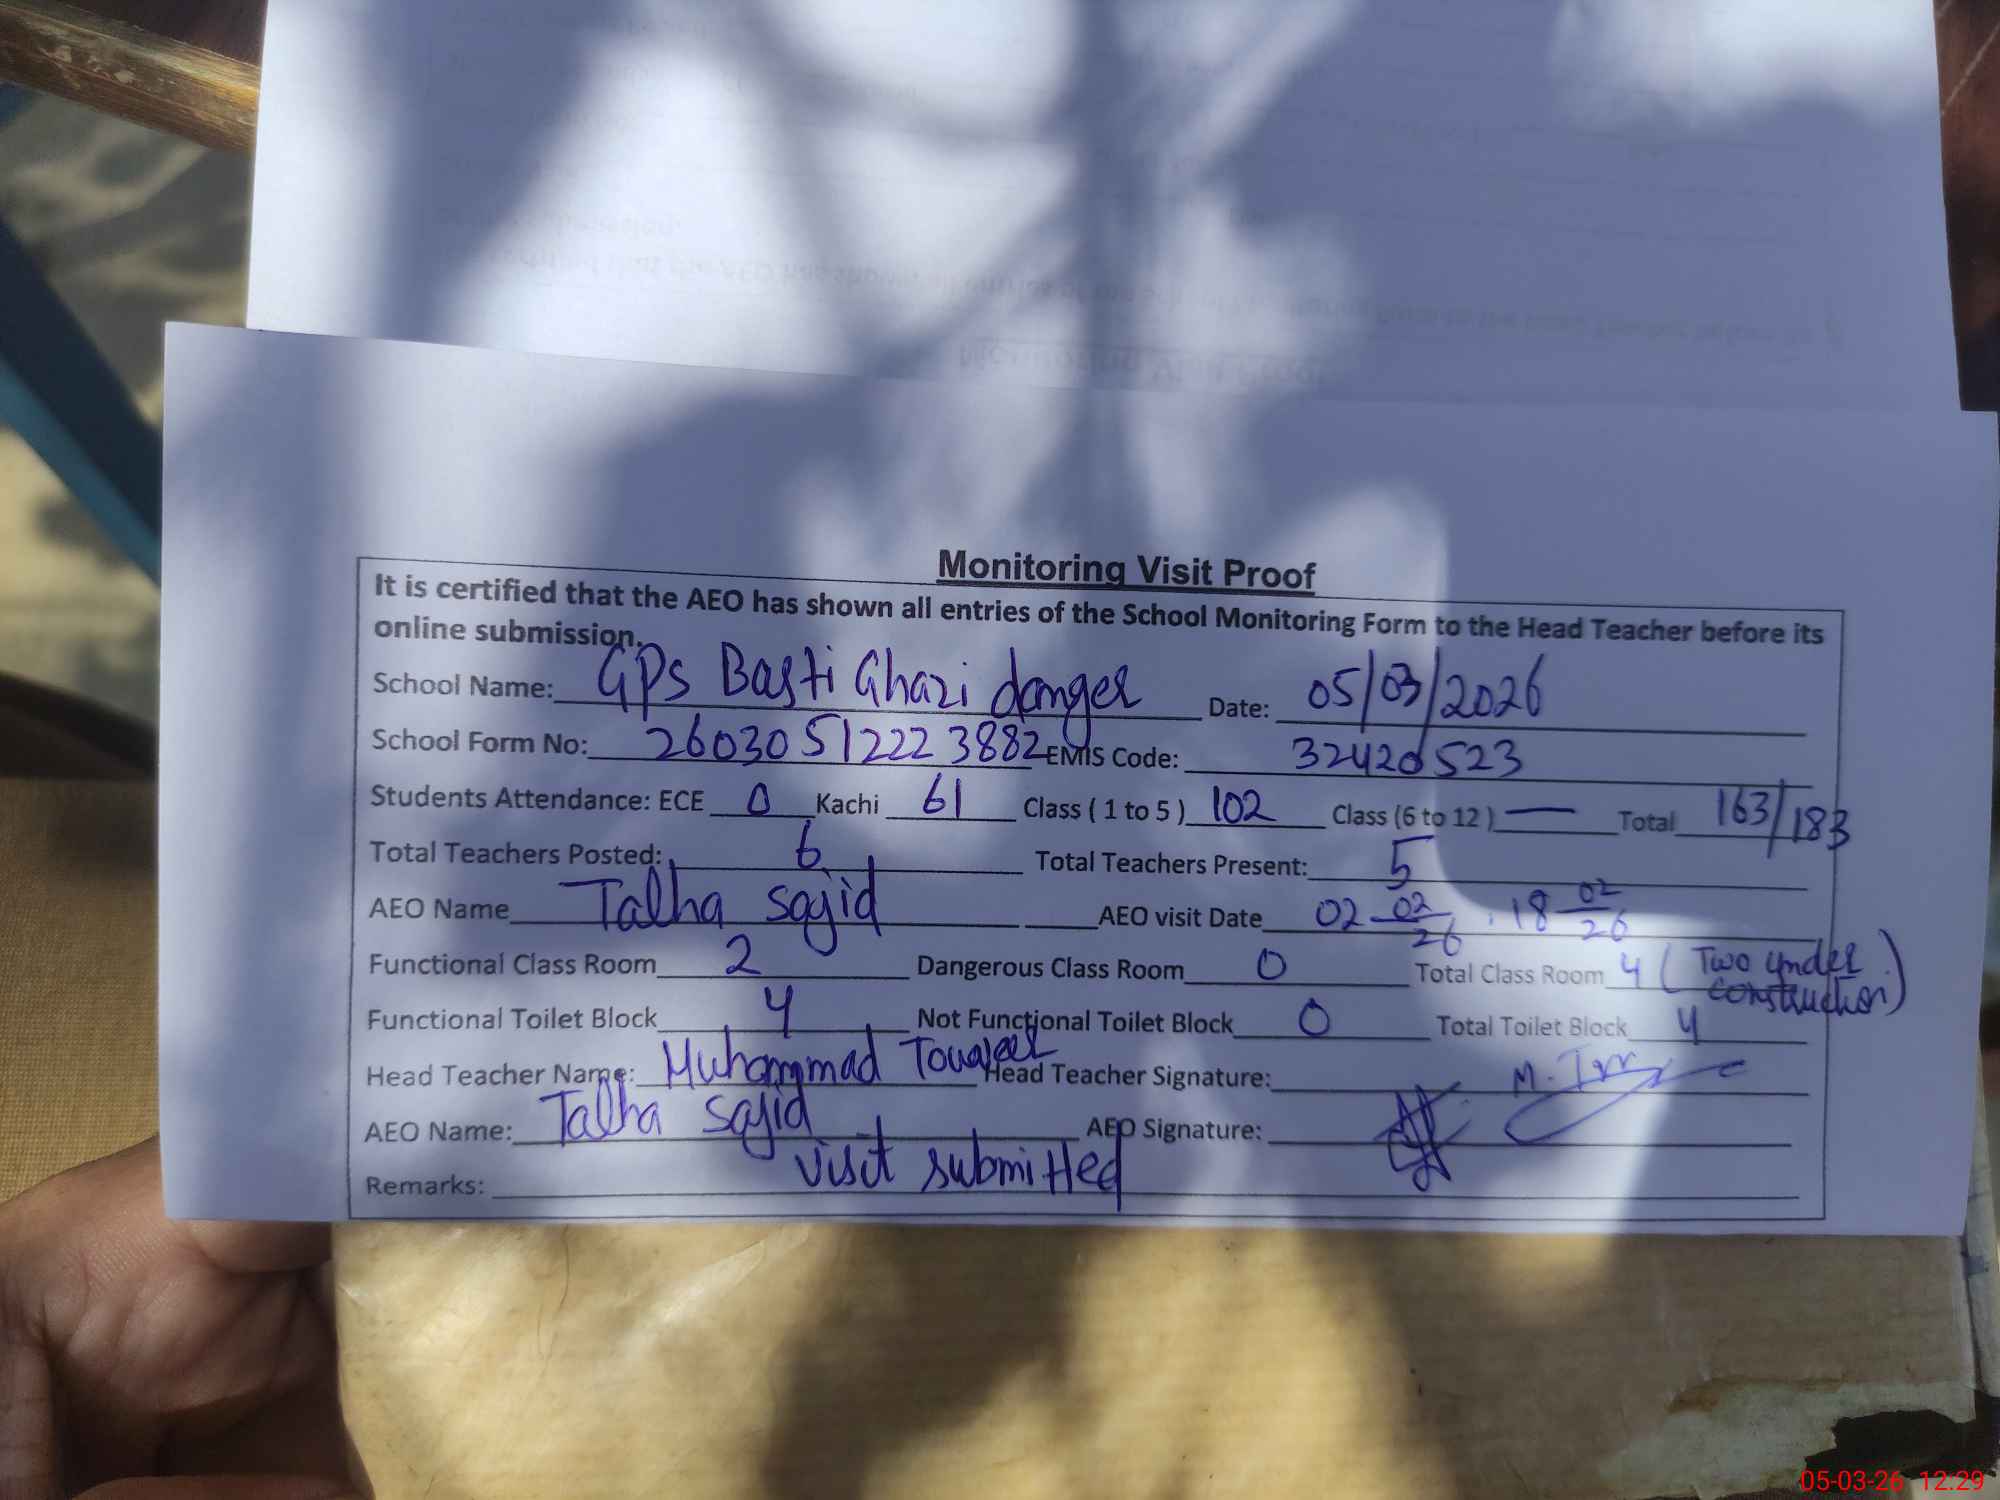 Monitoring Visit Proof
It is certified that the AEO has shown all entries of the School Monitoring Form to the Head Teacher before its
online submission.
School Name: GPS Basti Ghazi danger Date: 05/03/2026
School Form No: 2603051222 3882 EMIS Code: 32420523
Students Attendance: ECE 0 Kachi 61 Class ( 1 to 5 ) 102 Class (6 to 12 ) — Total 163/183
Total Teachers Posted: 6 Total Teachers Present: 5
AEO Name Talha sajid AEO visit Date 02 02/26, 18 02/26
Functional Class Room 2 Dangerous Class Room 0 Total Class Room 4 (Two under construction)
Functional Toilet Block 4 Not Functional Toilet Block 0 Total Toilet Block 4
Head Teacher Name: Muhammad Head Teacher Signature:
AEO Name: Talha sajid AEO Signature:
Remarks: visit submitted
05-03-26 12:29